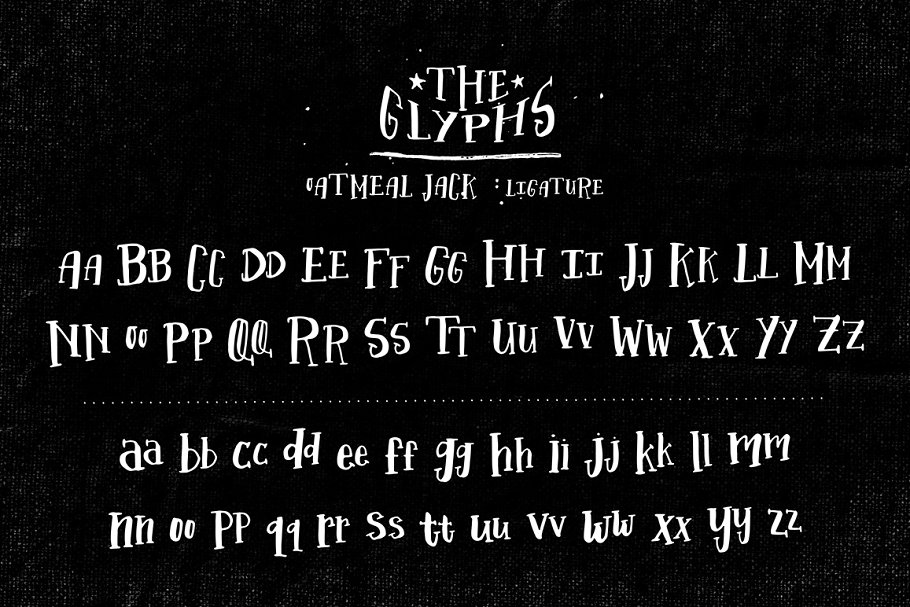 THE
GLYPHS
OATMEAL JACK : LIGATURE
AA BB CC DD EE FF GG HH II JJ KK LL MM
NN OO PP QQ RR SS TT UU VV WW XX YY ZZ
aa bb cc dd ee ff gg hh ii jj kk ll mm
nn oo pp qq rr ss tt uu vv ww xx yy zz